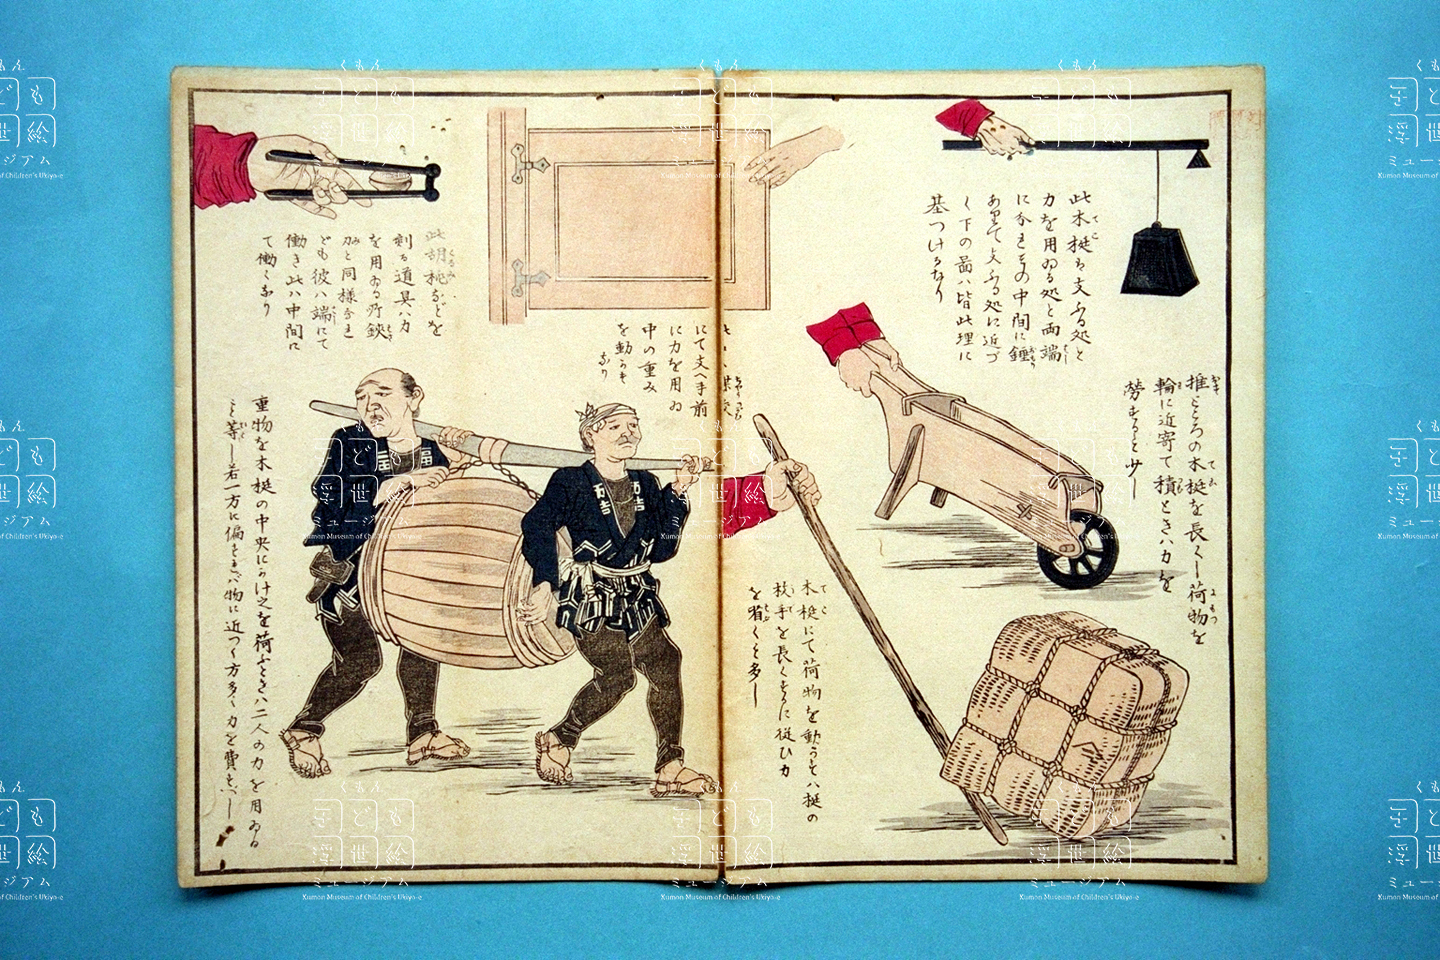 此木梃ハ支ふる処と
力を用ゐる処と両端
に分れその中間に錘
ありて支ふる処に近づ
く下の図ハ皆此理に
基つけるなり
推ところの木梃を長くし荷物を
輪に近寄て積ときハ力を
労すること少し
木梃にて荷物を動かすハ梃の
枝手を長くするに従ひ力
を省くこと多し
にて支へ手前
に力を用ゐ
中の重み
を動かす
なり
此胡桃などを
割る道具ハ力
を用ゐる所鋏
と同様なれ
ども彼ハ端にて
働き此ハ中間に
て働くなり
重物を木梃の中央にかけ之を荷ふときハ二人の力を用ゐる
こと等し若一方に偏すれバ物に近つく方多く力を費すべし
くもん
子ども
浮世絵
ミュージアム
Kumon Museum of Children's Ukiyo-e